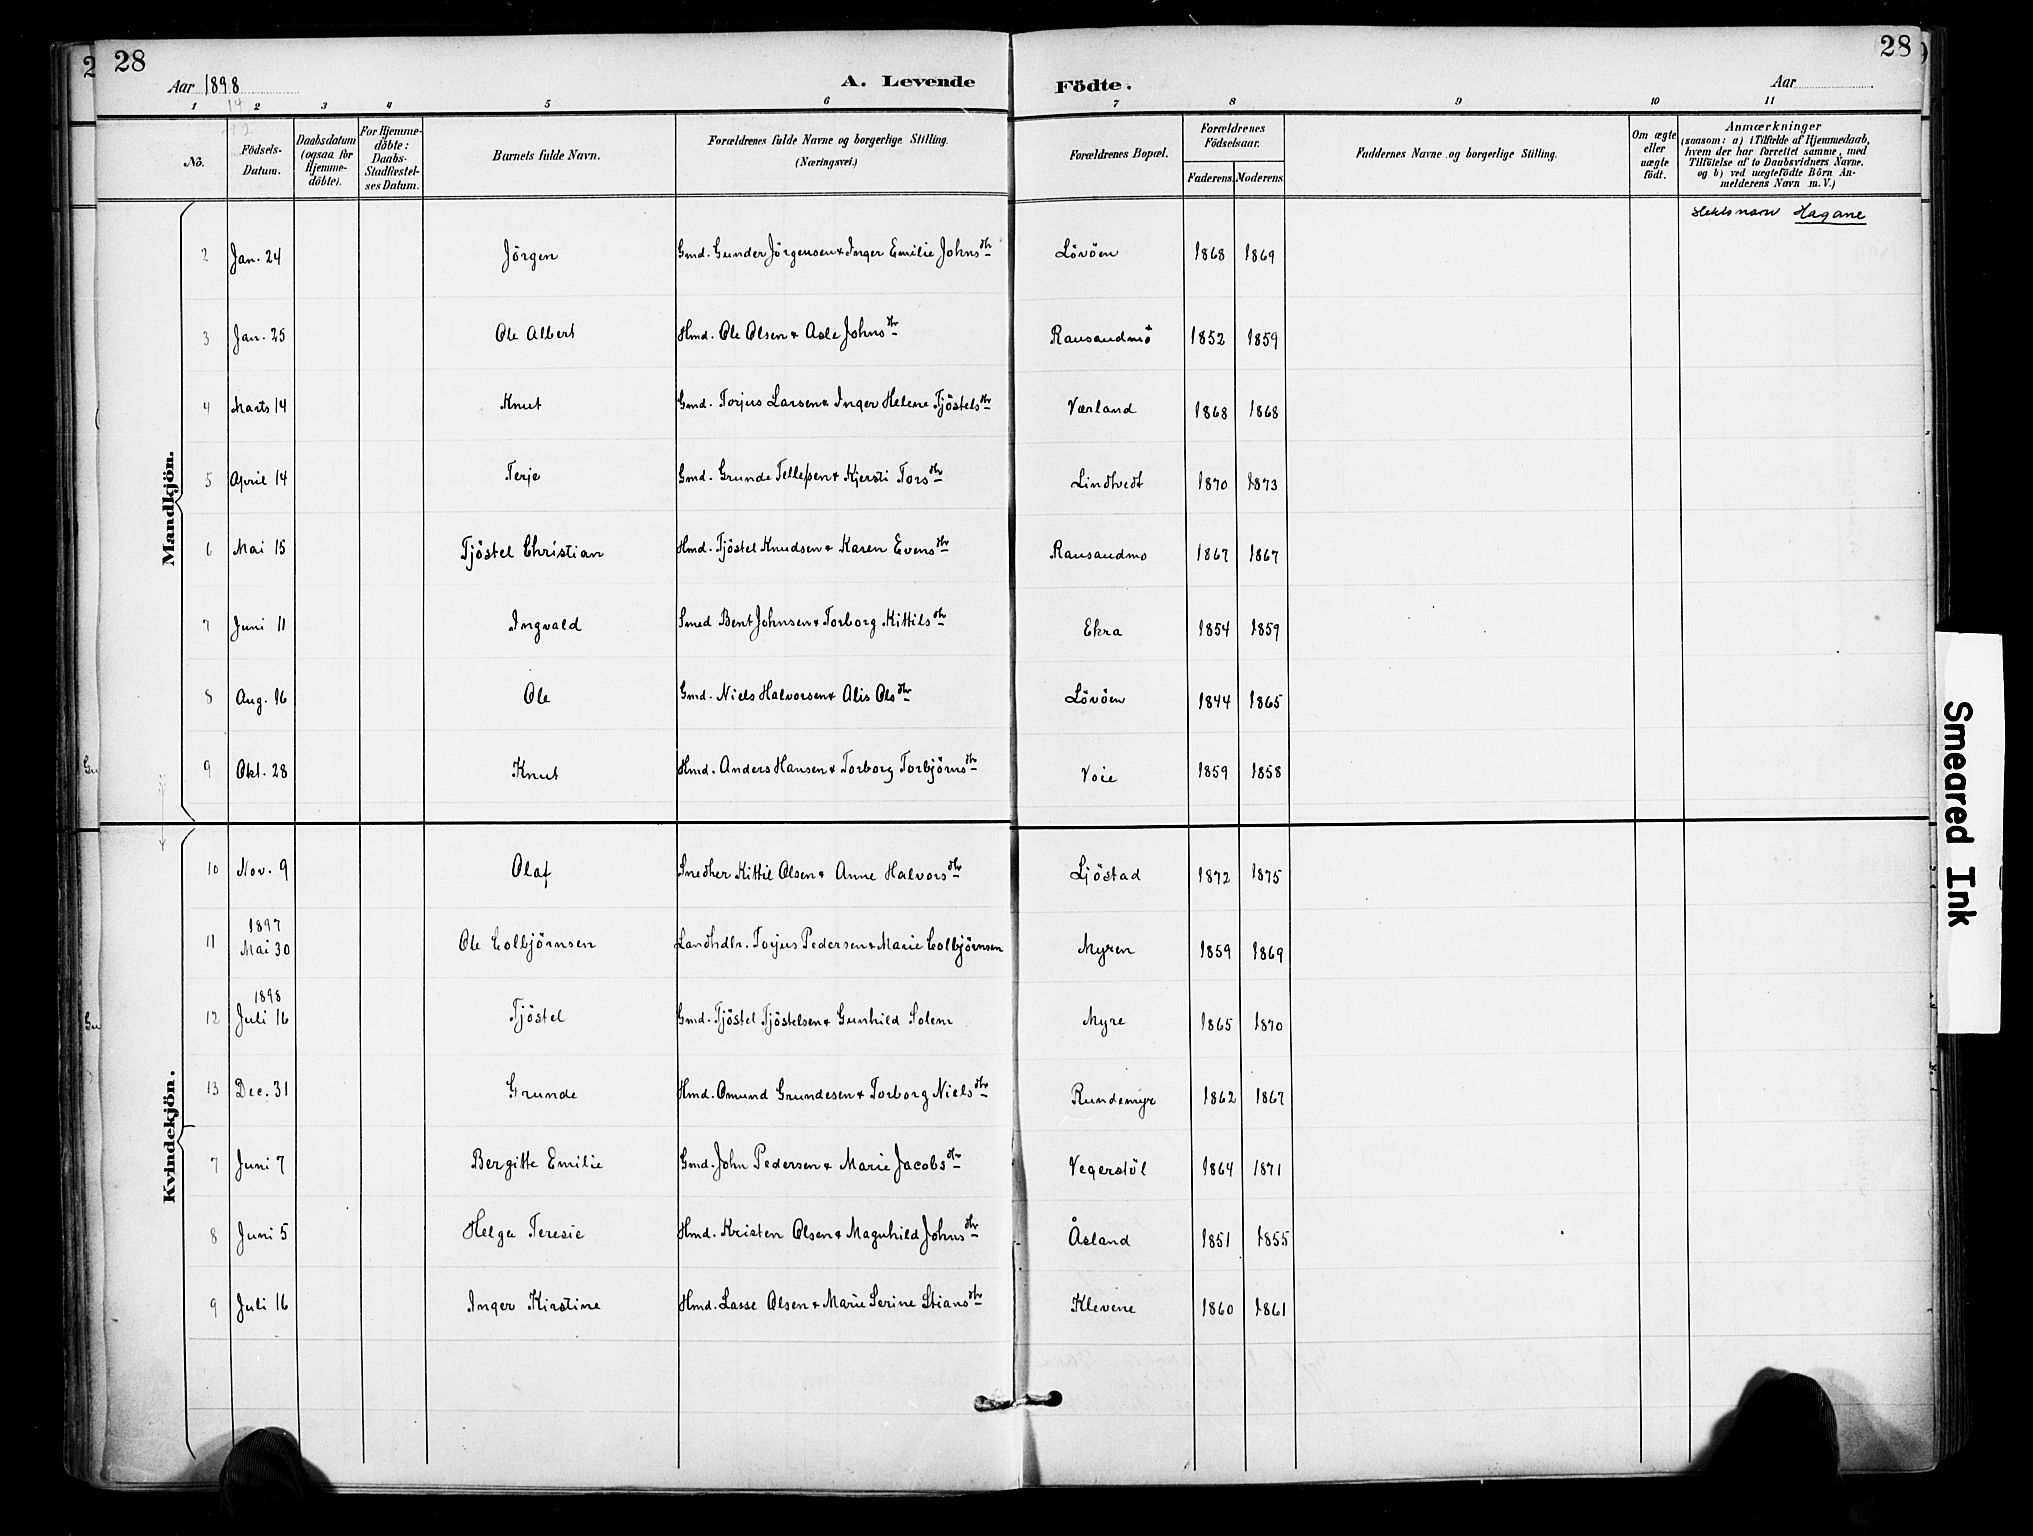 28
28
Aar 1898
A. Levende Födte.
Aar
1 2 3 4 5 6 7 8 9 10 11
No.
Födsels-Datum.
Daabsdatum (ogsaa for Hjemme-döbte).
For Hjemme-döbte: Daabs-Stadfæstel-ses Datum.
Barnets fulde Navn.
Forældrenes fulde Navne og borgerlige Stilling. (Næringsvei.)
Forældrenes Bopæl.
Forældrenes Födselsaar.
Faderens. Moderens.
Faddernes Navne og borgerlige Stilling.
Om ægte eller uægte födt.
Anmærkninger (saasom: a) i Tilfælde af Hjemmedaab, hvem der har forrettet samme, med Tilföielse af to Daabsvidners Navne, og b) ved uægtefödte Börn An-melderens Navn m. V.)
Mandkjön.
Slektsnavn Hagane
2 Jan. 24 Jörgen Gmd. Gunder Jörgensen & Inger Emilie Johnsdtr Lövöen 1868 1869
3 Jan. 25 Ole Albert Hmd. Ole Olsen & Asle Johnsdtr Rausandmo 1852 1859
4 Marts 14 Knut Gmd. Torjus Larsen & Inger Helene Tjöstelsdtr Værland 1868 1868
5 April 14 Terje Gmd. Grunde Tellefsen & Kjersti Torsdtr Lindtvedt 1870 1873
6 Mai 15 Tjöstel Christian Hmd. Tjöstel Knudsen & Karen Evensdtr Rausandmo 1867 1867
7 Juni 11 Ingvald Smed Bent Johnsen & Torborg Kittilsdtr Ekra 1854 1859
8 Aug. 16 Ole Gmd. Niels Halvorsen & Alis Olsdtr Lövöen 1844 1865
9 Okt. 28 Knut Hmd. Anders Hansen & Torborg Torbjörnsdtr Voie 1859 1858
Kvindekjön.
10 Nov. 9 Olaf Snedker Kittil Olsen & Anne Halvorsdtr Ljöstad 1872 1875
11 1897 Mai 30 Ole Colbjörnsen Landhdlr. Torjus Pedersen & Marie Colbjörnsen Myren 1859 1869
12 1898 Juli 16 Tjöstel Gmd. Tjöstel Tjöstelsen & Gunhild Solem Myre 1865 1870
13 Dec. 31 Grunde Hmd. Omund Grundesen & Torborg Nielsdtr Rundemyr 1862 1867
7 Juni 7 Bergitte Emilie Gmd. John Pedersen & Marie Jacobsdtr Vegerstöl 1864 1871
8 Juni 5 Helga Teresie Hmd. Kristen Olsen & Magnhild Johnsdtr Åsland 1851 1855
9 Juli 16 Inger Kirstine Hmd. Lasse Olsen & Marie Serine Stiansdtr Klevene 1860 1861
Smeared Ink